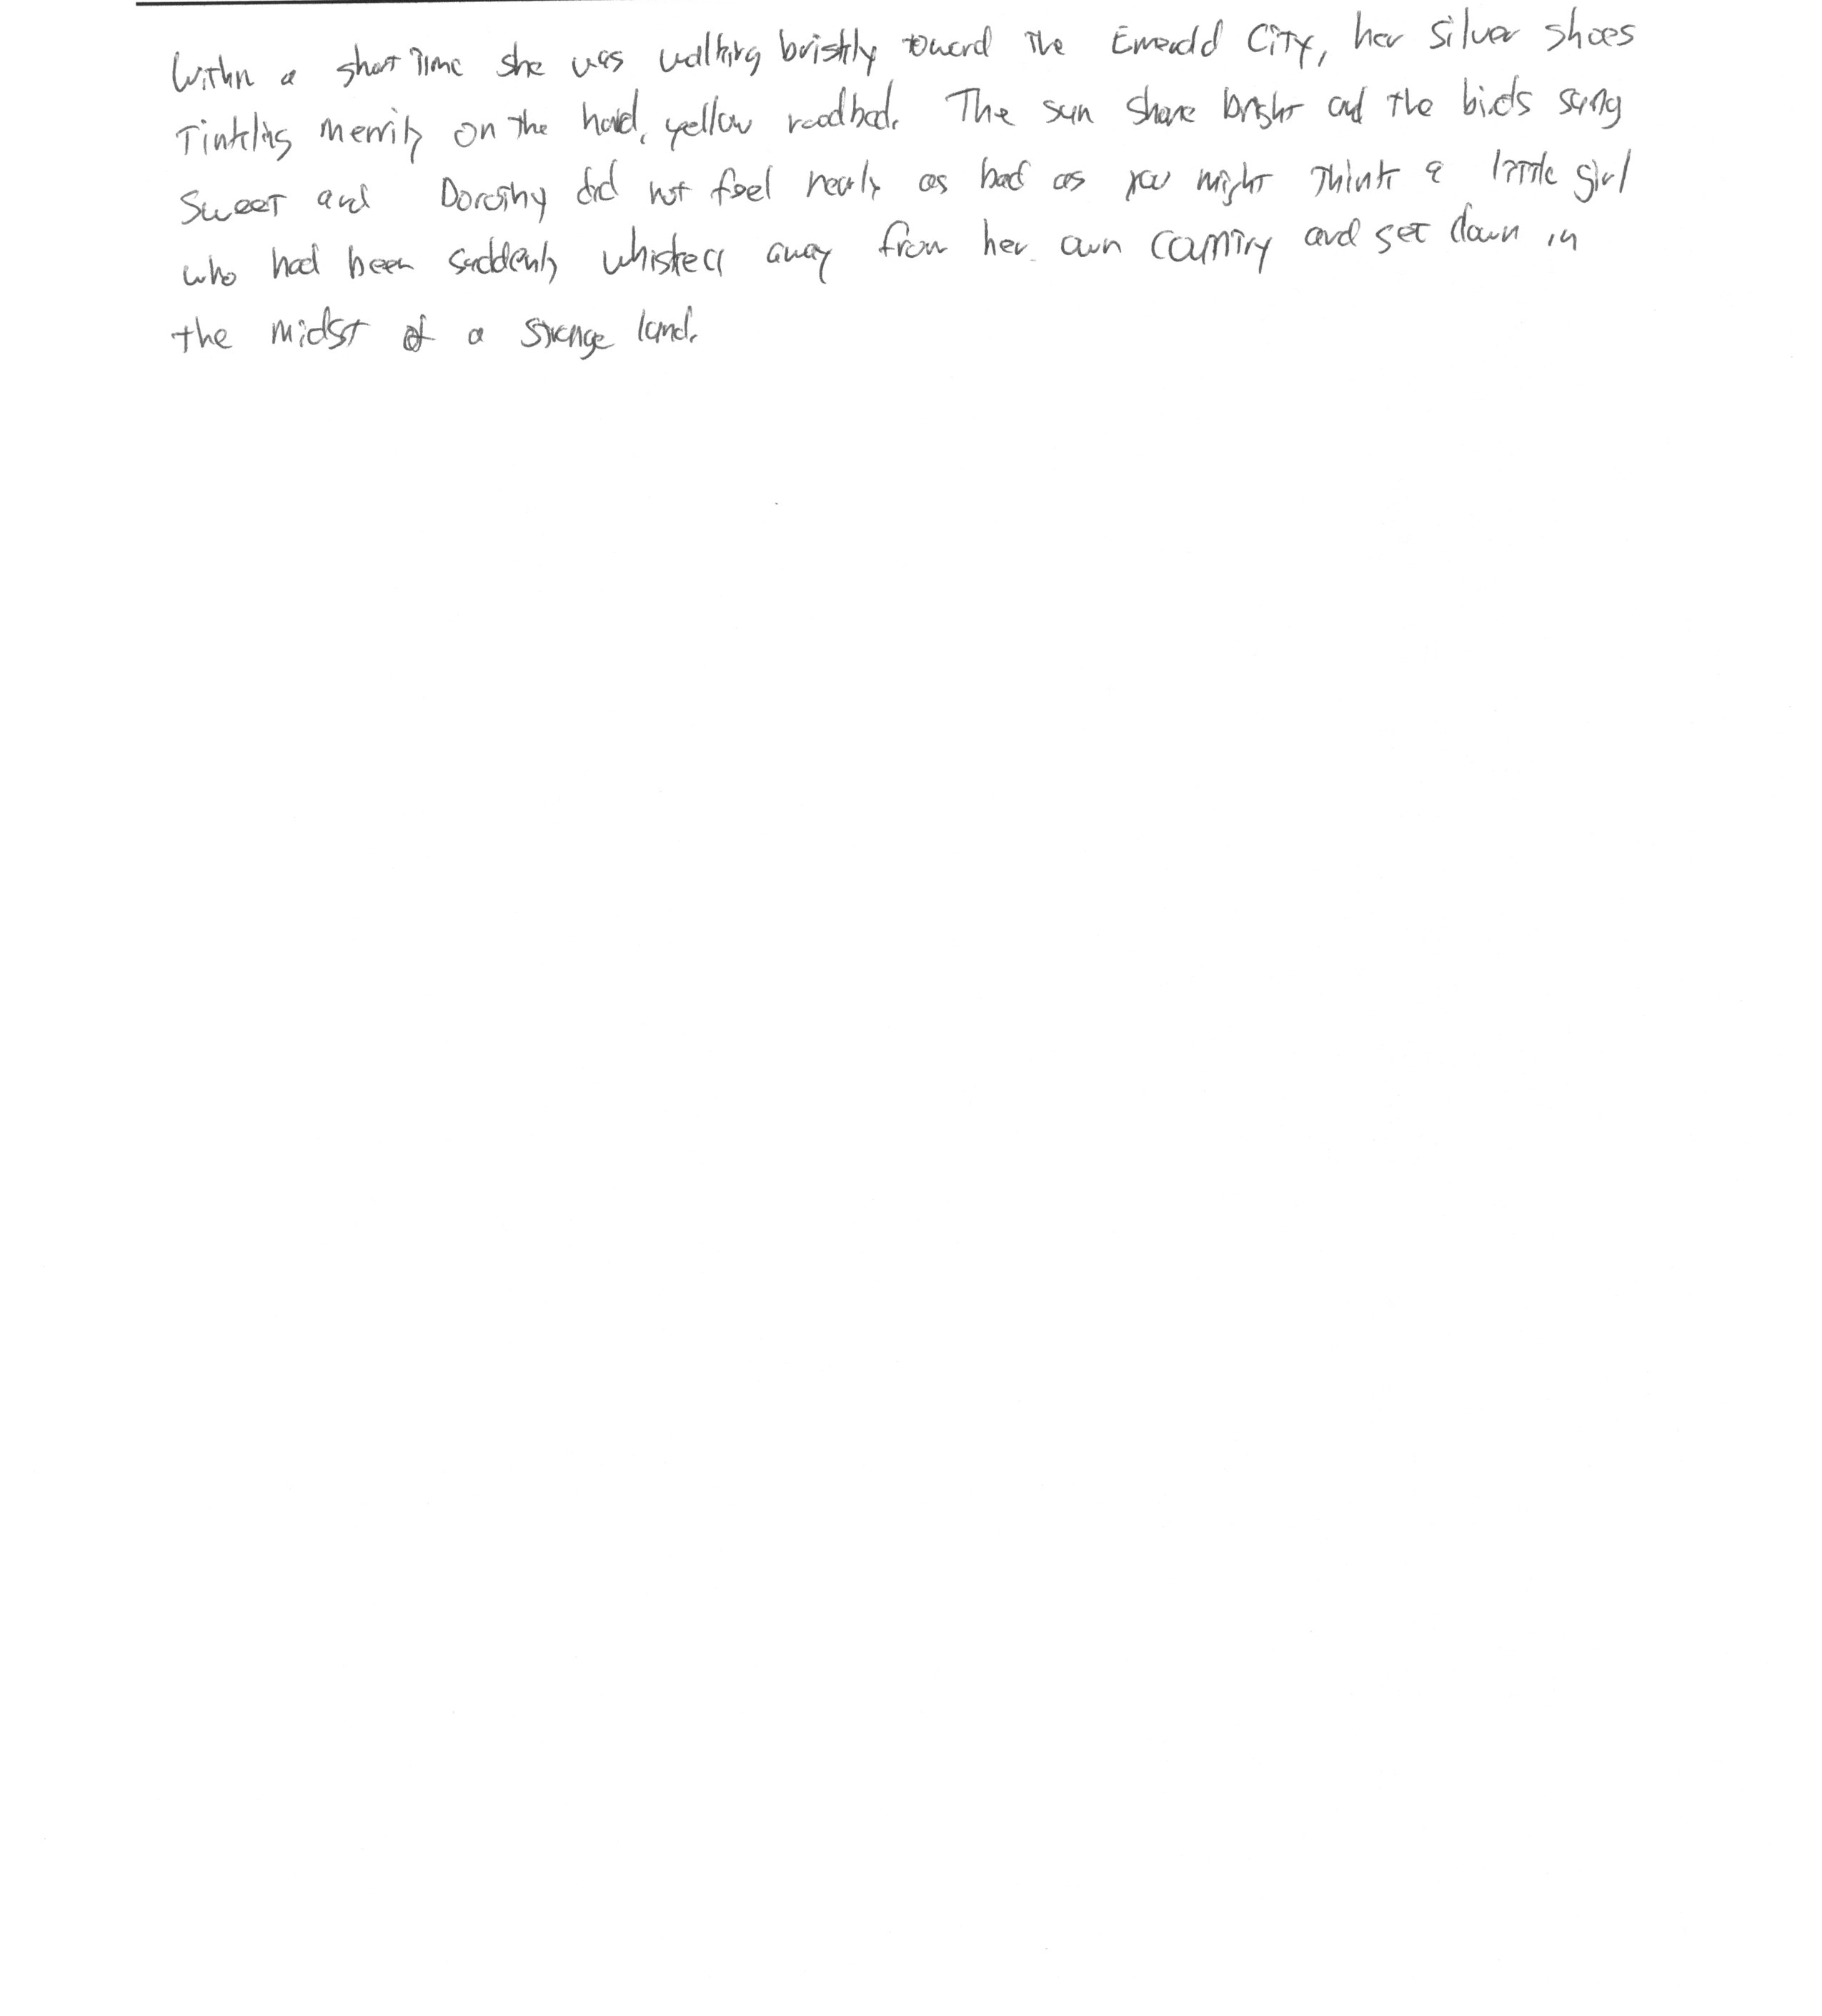 Within a short time she was walking briskly toward the Emerald City, her silver shoes
Tinkling merrily on the hard, yellow roadbed. The sun shone bright and the birds sung
sweet and Dorothy did not feel nearly as bad as you might think a little girl
who had been suddenly whisked away from her own country and set down in
the midst of a strange land.